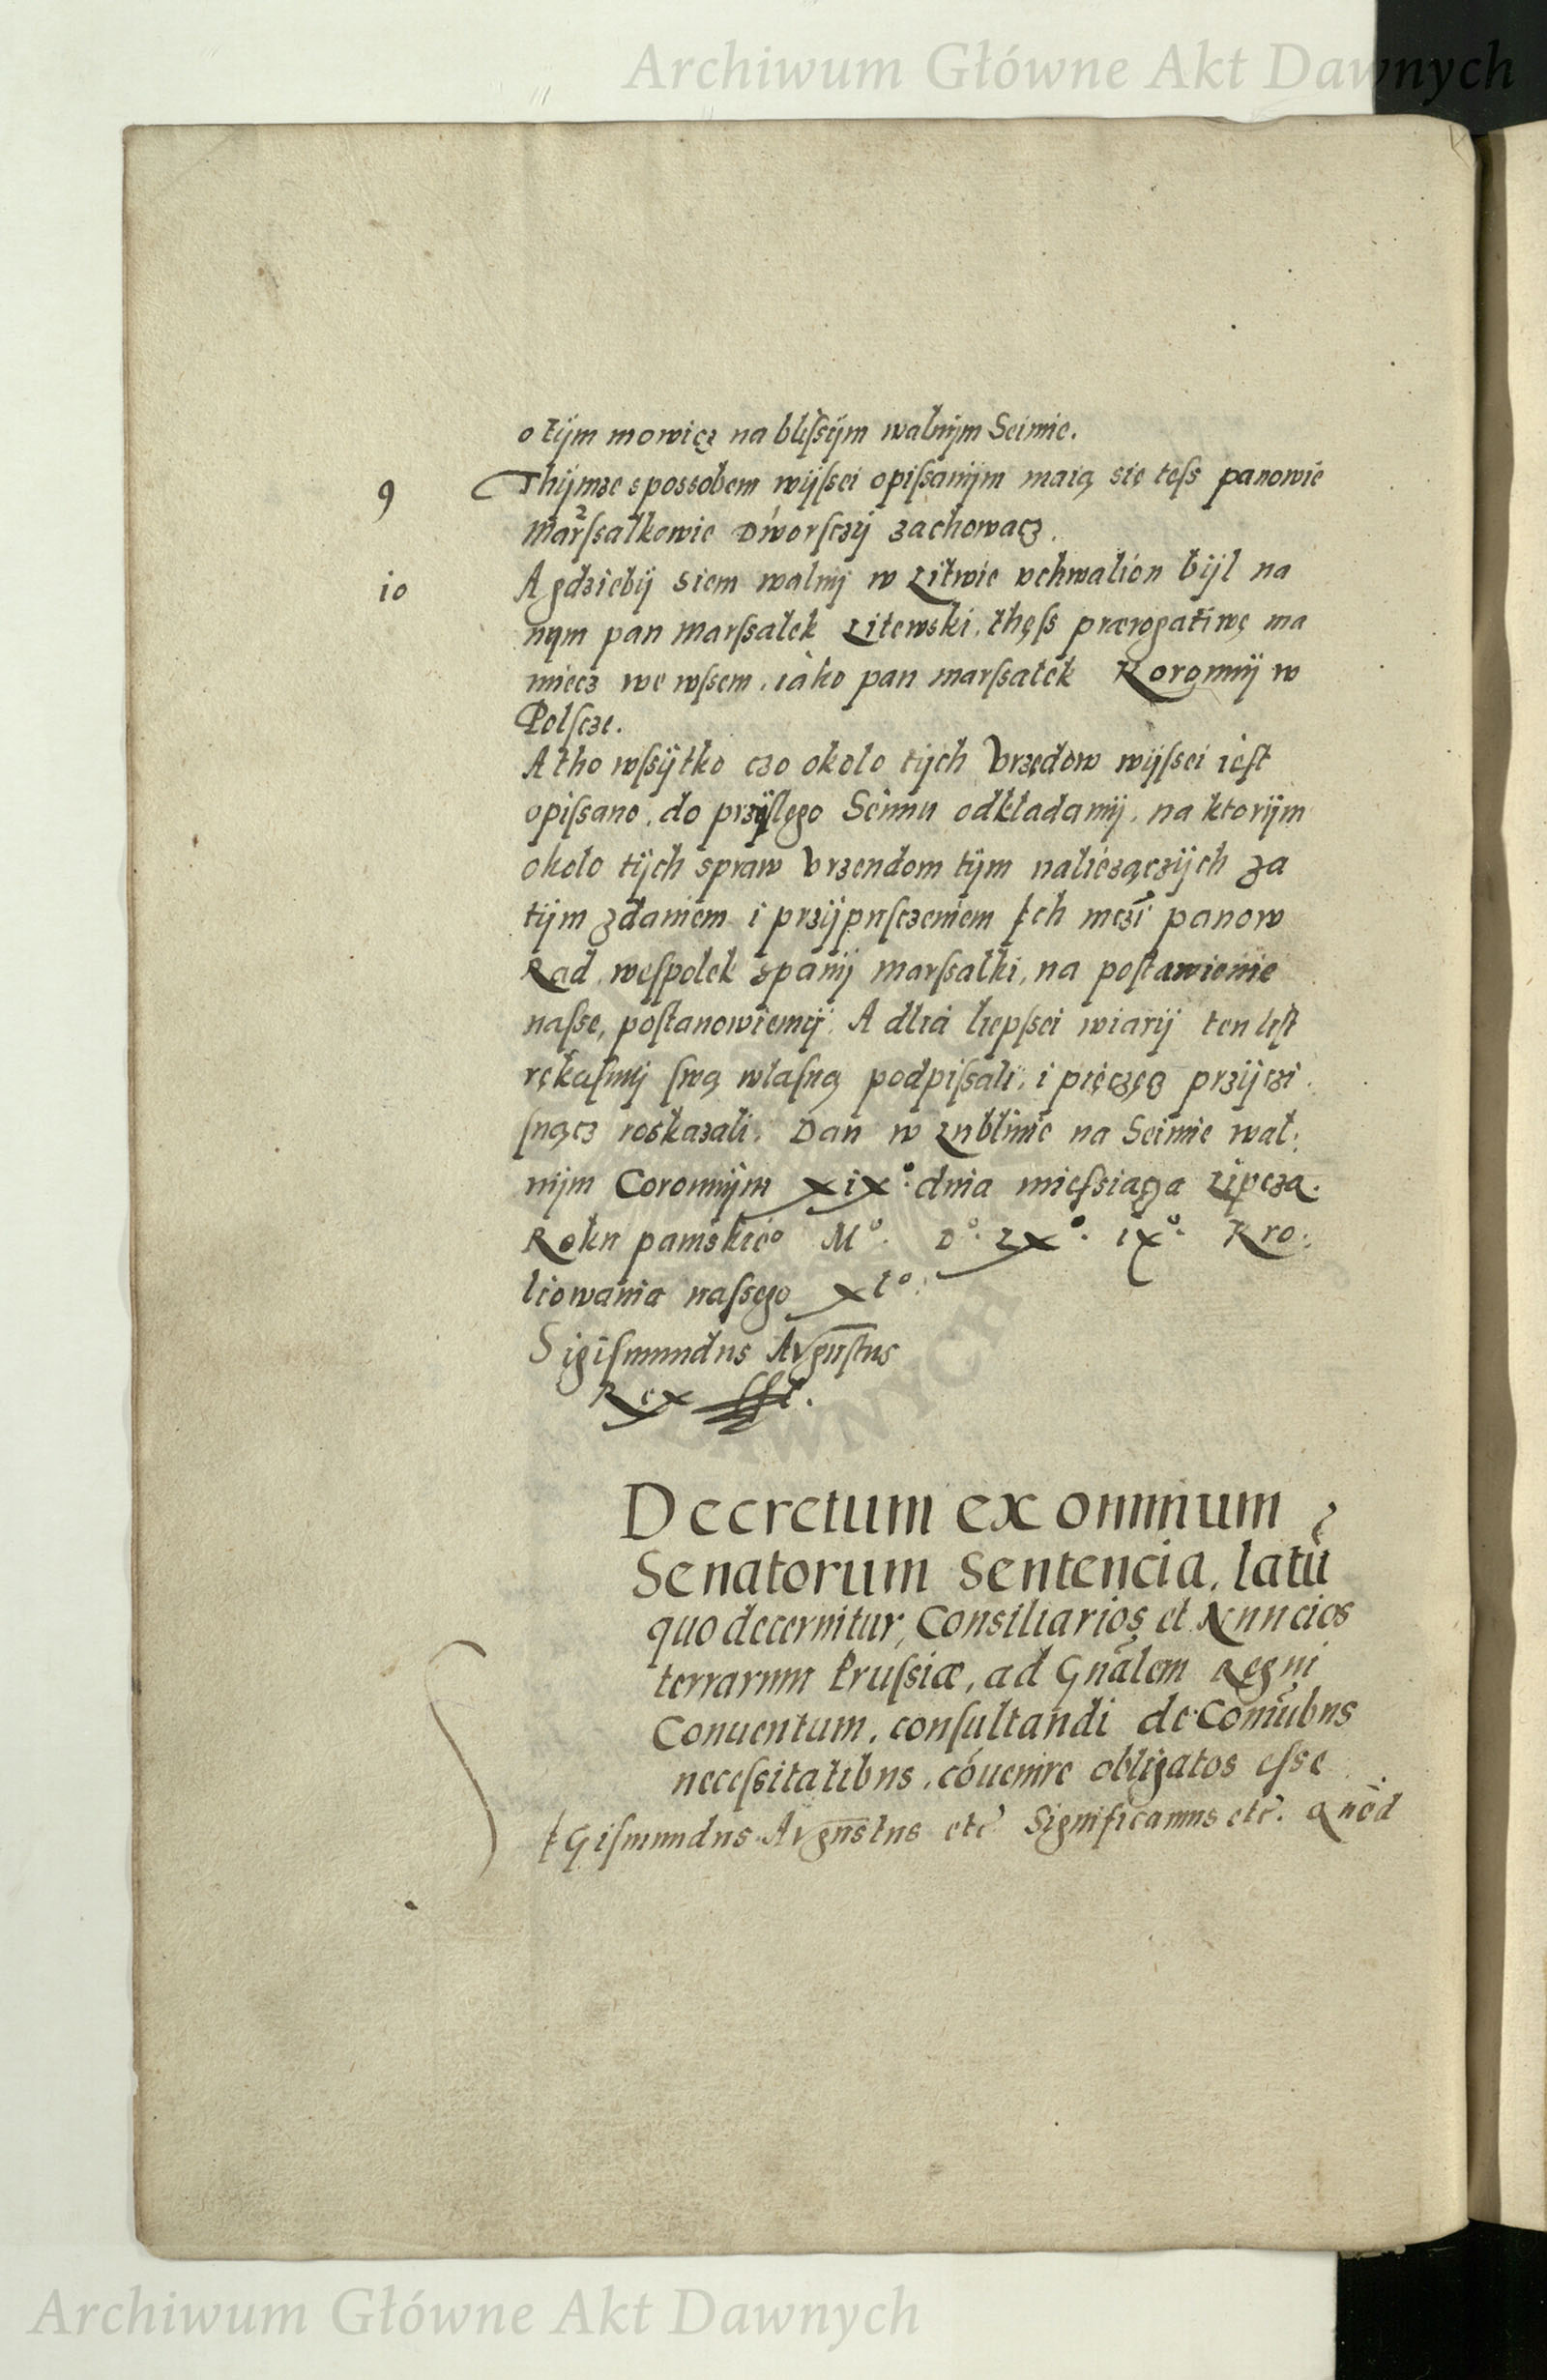 Archiwum Główne Akt Dawnych
o tijm mowięz na bliſsijm walnijm Seimie.
9 Thijmze spossobem wijſsei opiſsanijm maią się teſs panowie
Marſsalkowie Dworſczij zachowacz.
io A gdziebij Siem walnij w Litwie vchwalion bijl na
nijm pan Marſsalek Litewski, thęſs prærogatiwę ma
miecz we wſsem, iako pan marſsalek Koronnij w
Polſcze.
A tho wſsijtko czo okolo tijch Vrzedow wijſsei ieſt
opiſsano, do przijſlego Seimu odkladamij, na ktorijm
okolo tijch spraw Vrzendom tijm należączijch za
tijm zdaniem i przijpuſczeniem Ich mczi panow
Rad, weſpolek spanij Marſsalki, na poſtawienie
naſse, poſtanowiemij. A dlia liepſsei wiarij ten liſt
rękaſmij ſwą wlaſną podpiſsali, i pięczęcz przijczi.
ſnącz roskazali. Dan w Lublinie na Seimie wal:
nijm Coronnijm xix° dnia mieſsiącza Lipcza.
Roku panskie° M°. D°. Lx°. ix°. Kro:
liowania naſsego xl°.
Sigiſmundus Avguſtus
Rex sſt.
Decretum ex omnium
Senatorum Sentencia, latū
quo decernitur, Consiliarios et Nuncios
terrarum Pruſsiæ, ad Gnālem Regni
Conuentum, conſultandi de Comūbus
neceſsitatibus, cōuenire obligatos eſse
Igiſmundus Avgustus etc Significamus etc. Quod
Archiwum Główne Akt Dawnych